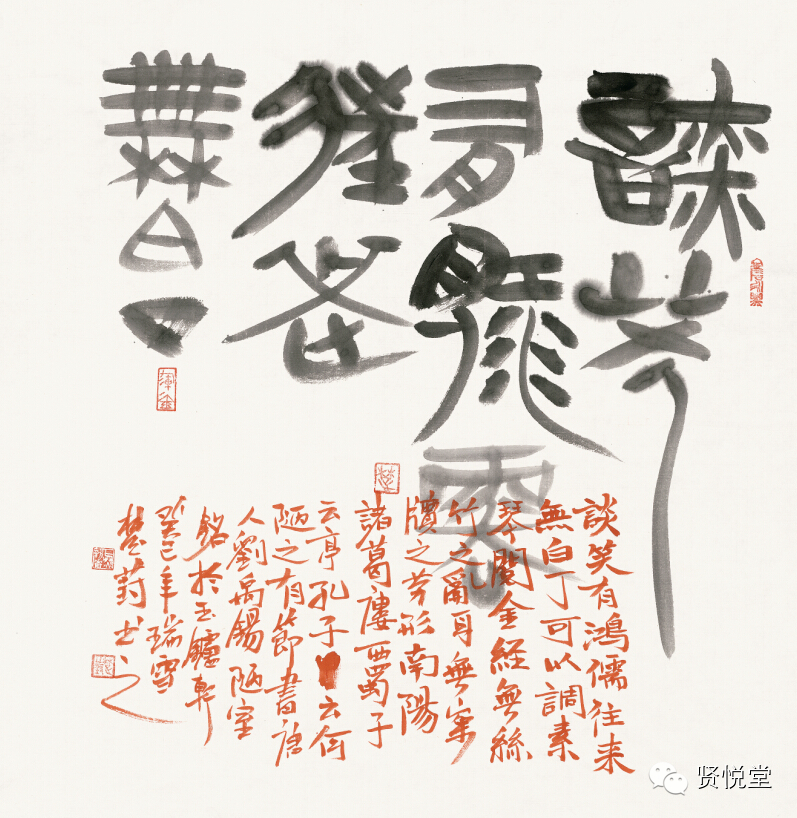 談笑
有鴻儒
往來
無白丁
談笑有鴻儒往来
無白丁可以調素
琴閱金經無絲
竹之亂耳無案
牘之勞形南陽
諸葛廬西蜀子
云亭孔子云何
陋之有節書唐
人劉禹錫陋室
銘於玉鑪軒
癸巳年瑞雪
楚葑书之
贤悦堂